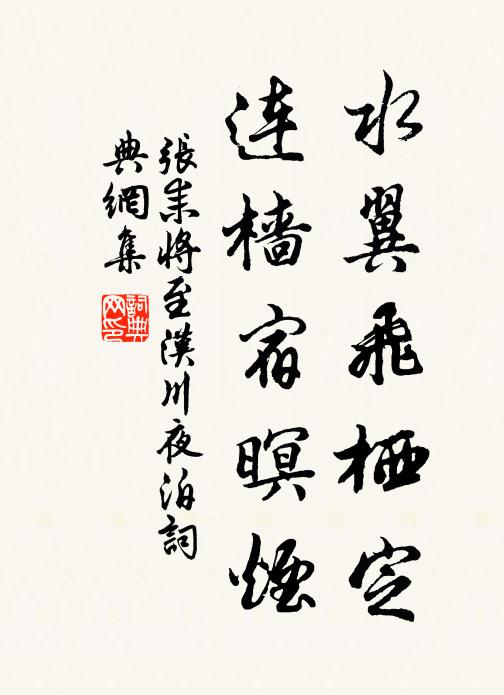 水翼飛栖定
連檣宿暝煙
張耒將至漢川夜泊詞
典網集
詞典
网印